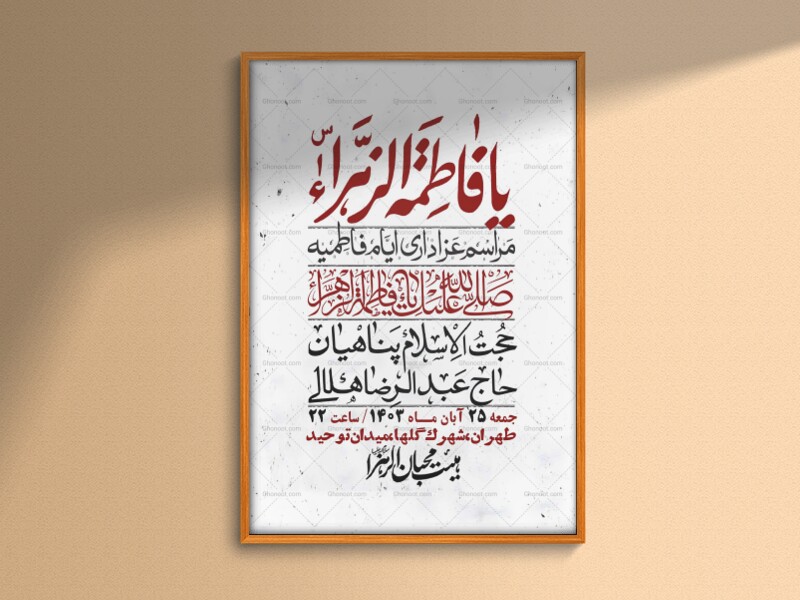 یا فاطمة الزهراء س
مراسم عزاداری ایام فاطمیه
صلی الله علیک یا فاطمة الزهراء
حجت الاسلام پناهیان
حاج عبدالرضا هلالی
جمعه ۲۵ آبان ماه ۱۴۰۳ / ساعت ۲۲
طهران، شهرک گلها، میدان توحید
هیئت محبان الزهرا
Ghonoot.com